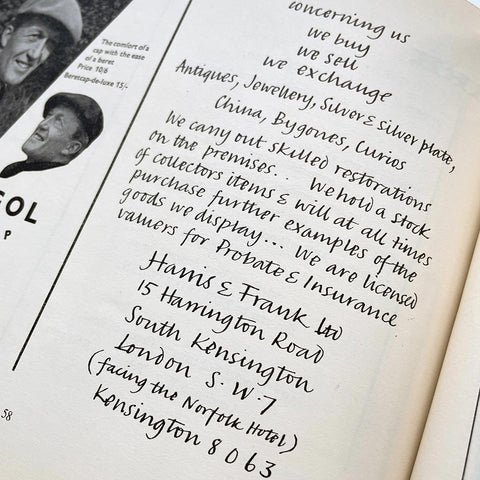 The comfort of a
cap with the ease
of a beret
Price 10/6
Beretcap-de-luxe 15/-
GOL
P
58
concerning us
we buy
we sell
we exchange
Antiques, Jewellery, Silver & silver plate,
China, Bygones, Curios
We carry out skilled restorations
on the premises.. We hold a stock
of collectors items & will at all times
purchase further examples of the
goods we display... We are licensed
valuers for Probate & Insurance
Harris & Frank Ltd
15 Harrington Road
South Kensington
London S.W.7
(facing the Norfolk Hotel)
Kensington 8063